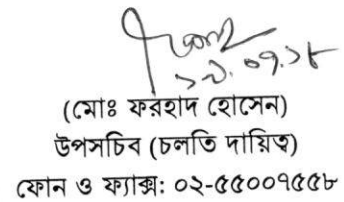 ১৫.০৭.১৮
(মোঃ ফরহাদ হোসেন)
উপসচিব (চলতি দায়িত্ব)
ফোন ও ফ্যাক্স: ০২-৫৫০০৭৫৫৮